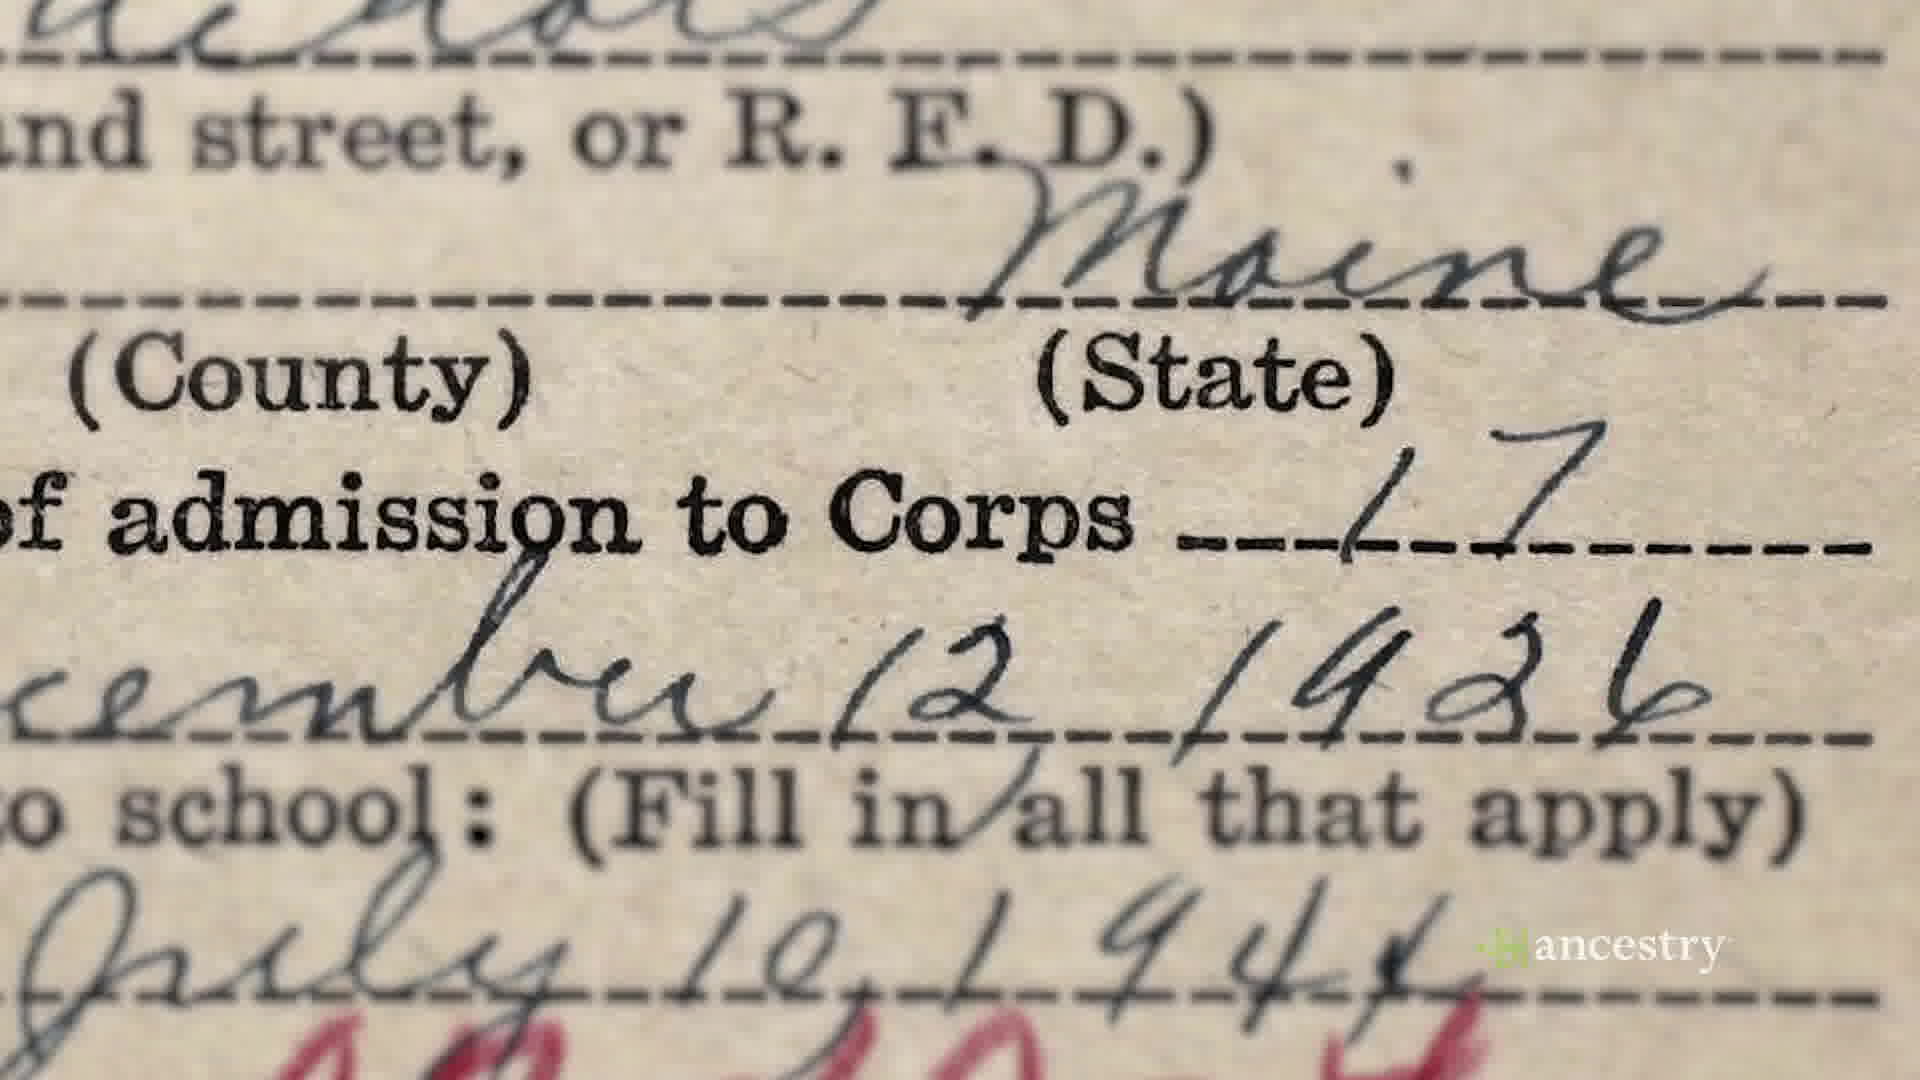 and street, or R. F. D.)
Maine
(County) (State)
of admission to Corps 17
cember 12, 1926
to school: (Fill in all that apply)
July 10, 1944
ancestry